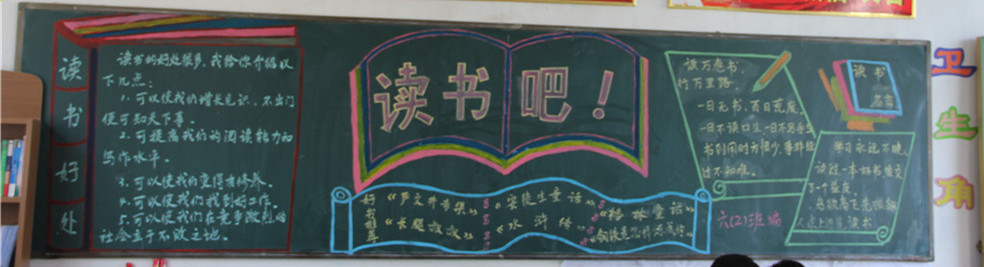 读书好处
读书的好处很多,我给你介绍以
下几点:
1.可以使我们增长见识,不出门
便可知天下事。
2.可提高我们的阅读能力和
写作水平。
3.可以使我们变得有修养。
4.可以使我们找到好工作。
5.可以使我们在竞争激烈的
社会立于不败之地。
读书吧!
好书推荐
《安徒生童话》
《格林童话》
《水浒传》
读万卷书,
行万里路。
一日无书,百日荒废。
书到用时方恨少,事非经
过不知难。
六(2)班
读书
名言
学习永远不晚
读过一本好书像交
了一个益友。
读书
卫生角